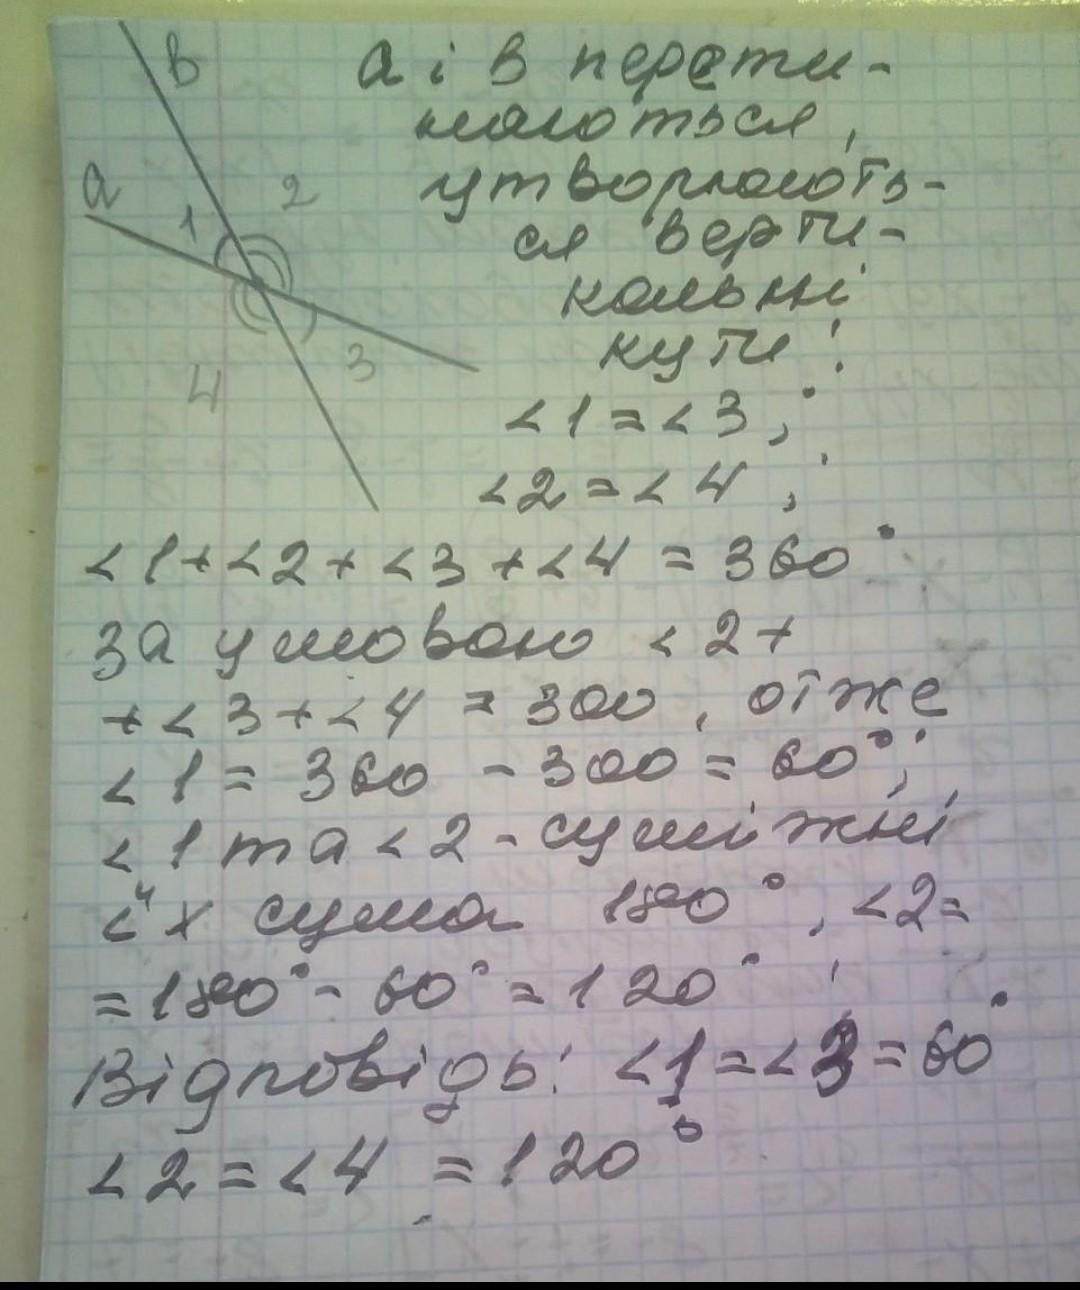 в
а
1
2
3
4
а і в перети-
наються,
утворюють-
ся верти-
кальні
кути:
<1=<3;
<2=<4;
<1+<2+<3+<4=360°
За умовою <2+
+<3+<4=300, отже
<1=360-300=60°;
<1 та <2-суміжні
їх сума 180°, <2=
=180°-60°=120°
Відповідь: <1=<3=60°
<2=<4=120°